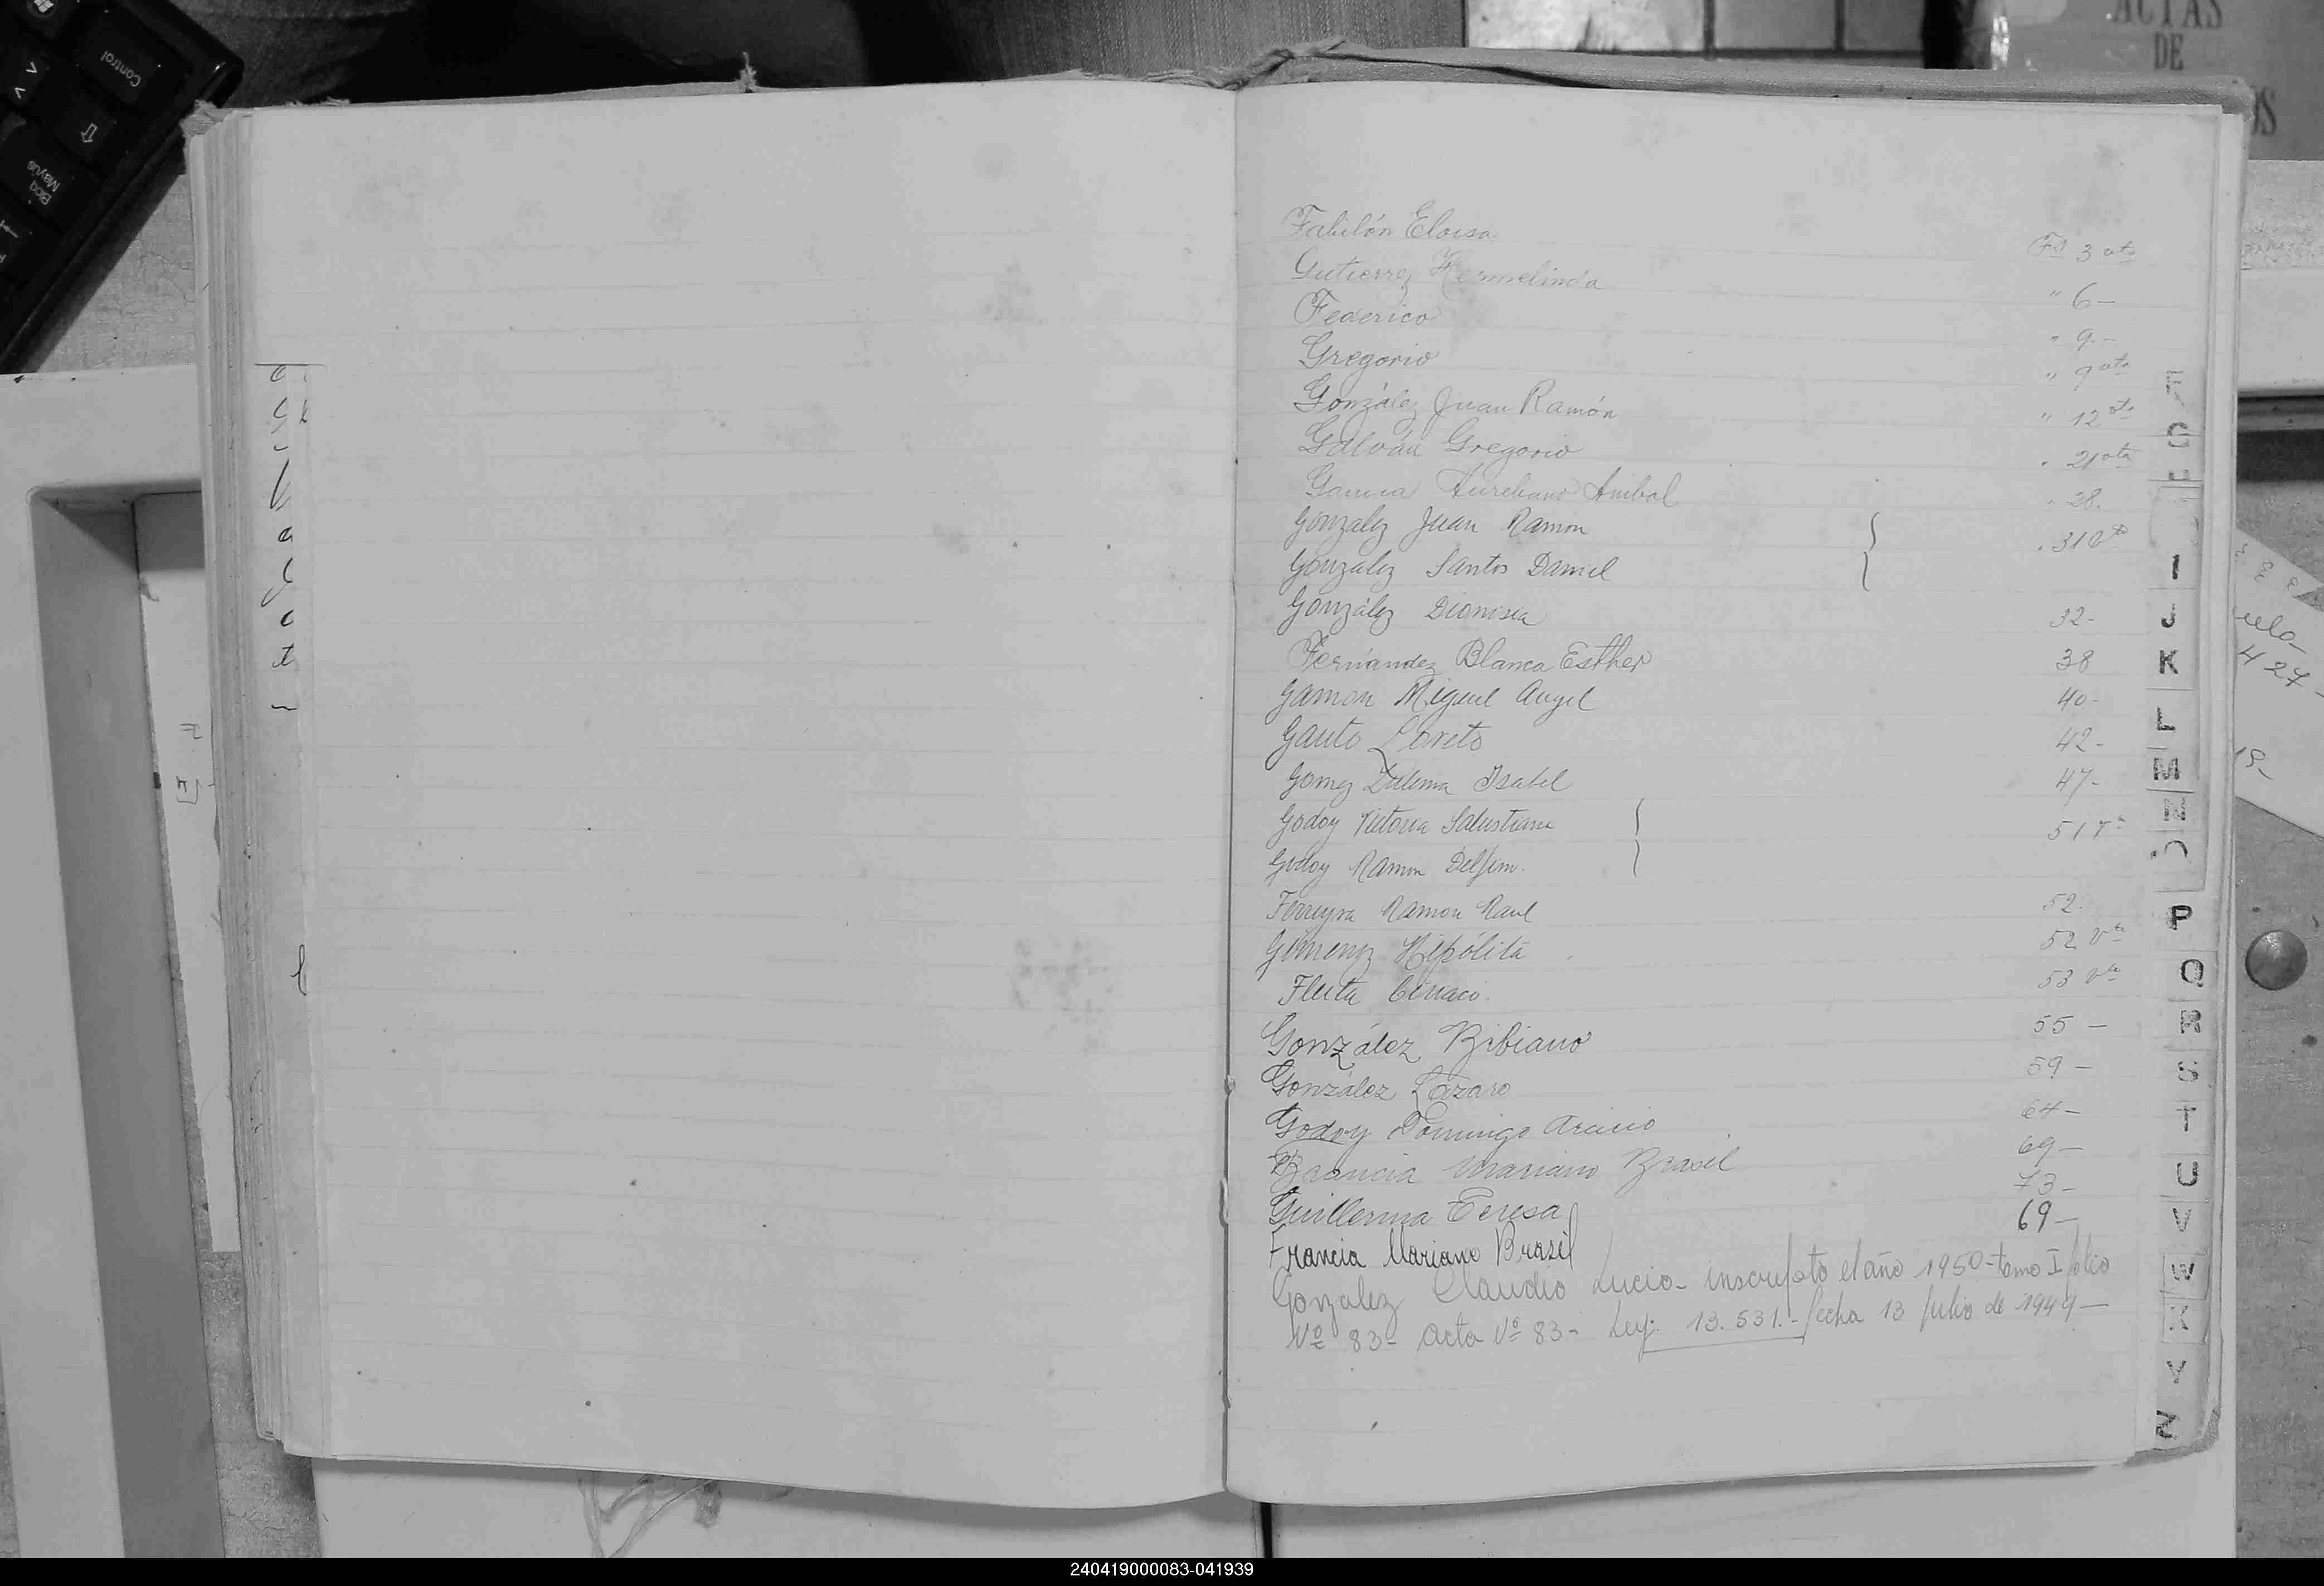 ACTAS
DE
Control
Bloq
Mayús
Fabilón Eloisa Fo 3 vta
Gutierrez Hermelinda " 6-
Federico " 9.-
Gregorio " 9 vta
González Juan Ramón " 12 vta
Galván Gregorio " 21 vta
Aureliano Anibal " 28.
Gonzalez Juan Ramon 31 vta
Gonzalez Santos Daniel
González Dionisia 32-
Fernandez Blanca Esther 38
Gamon Miguel Angel 40-
Gauto Loreto 42-
Gomez Zulema Isabel 47-
Godoy Victoria Salustiana 51 Vta
Godoy Ramon Delfin.
Ferreyra Ramon Raul 52-
Gimenez Hipólita 52 Vta
Ciriaco. 53 vta
González Bibiano 55 -
González Lázaro 59 -
Godoy Domingo 64-
Mariano Brasil 69-
Guillerma Teresa 73-
Francia Mariano Brasil 69-
Gonzalez Claudio Lucio- inscripto el año 1950- tomo I folio
Nº 83- Acta Nº 83- Ley: 13.531.- fecha 13 julio de 1949-
I
J
K
L
M
N
O
P
Q
R
S
T
U
V
W
X
Y
Z
240419000083-041939